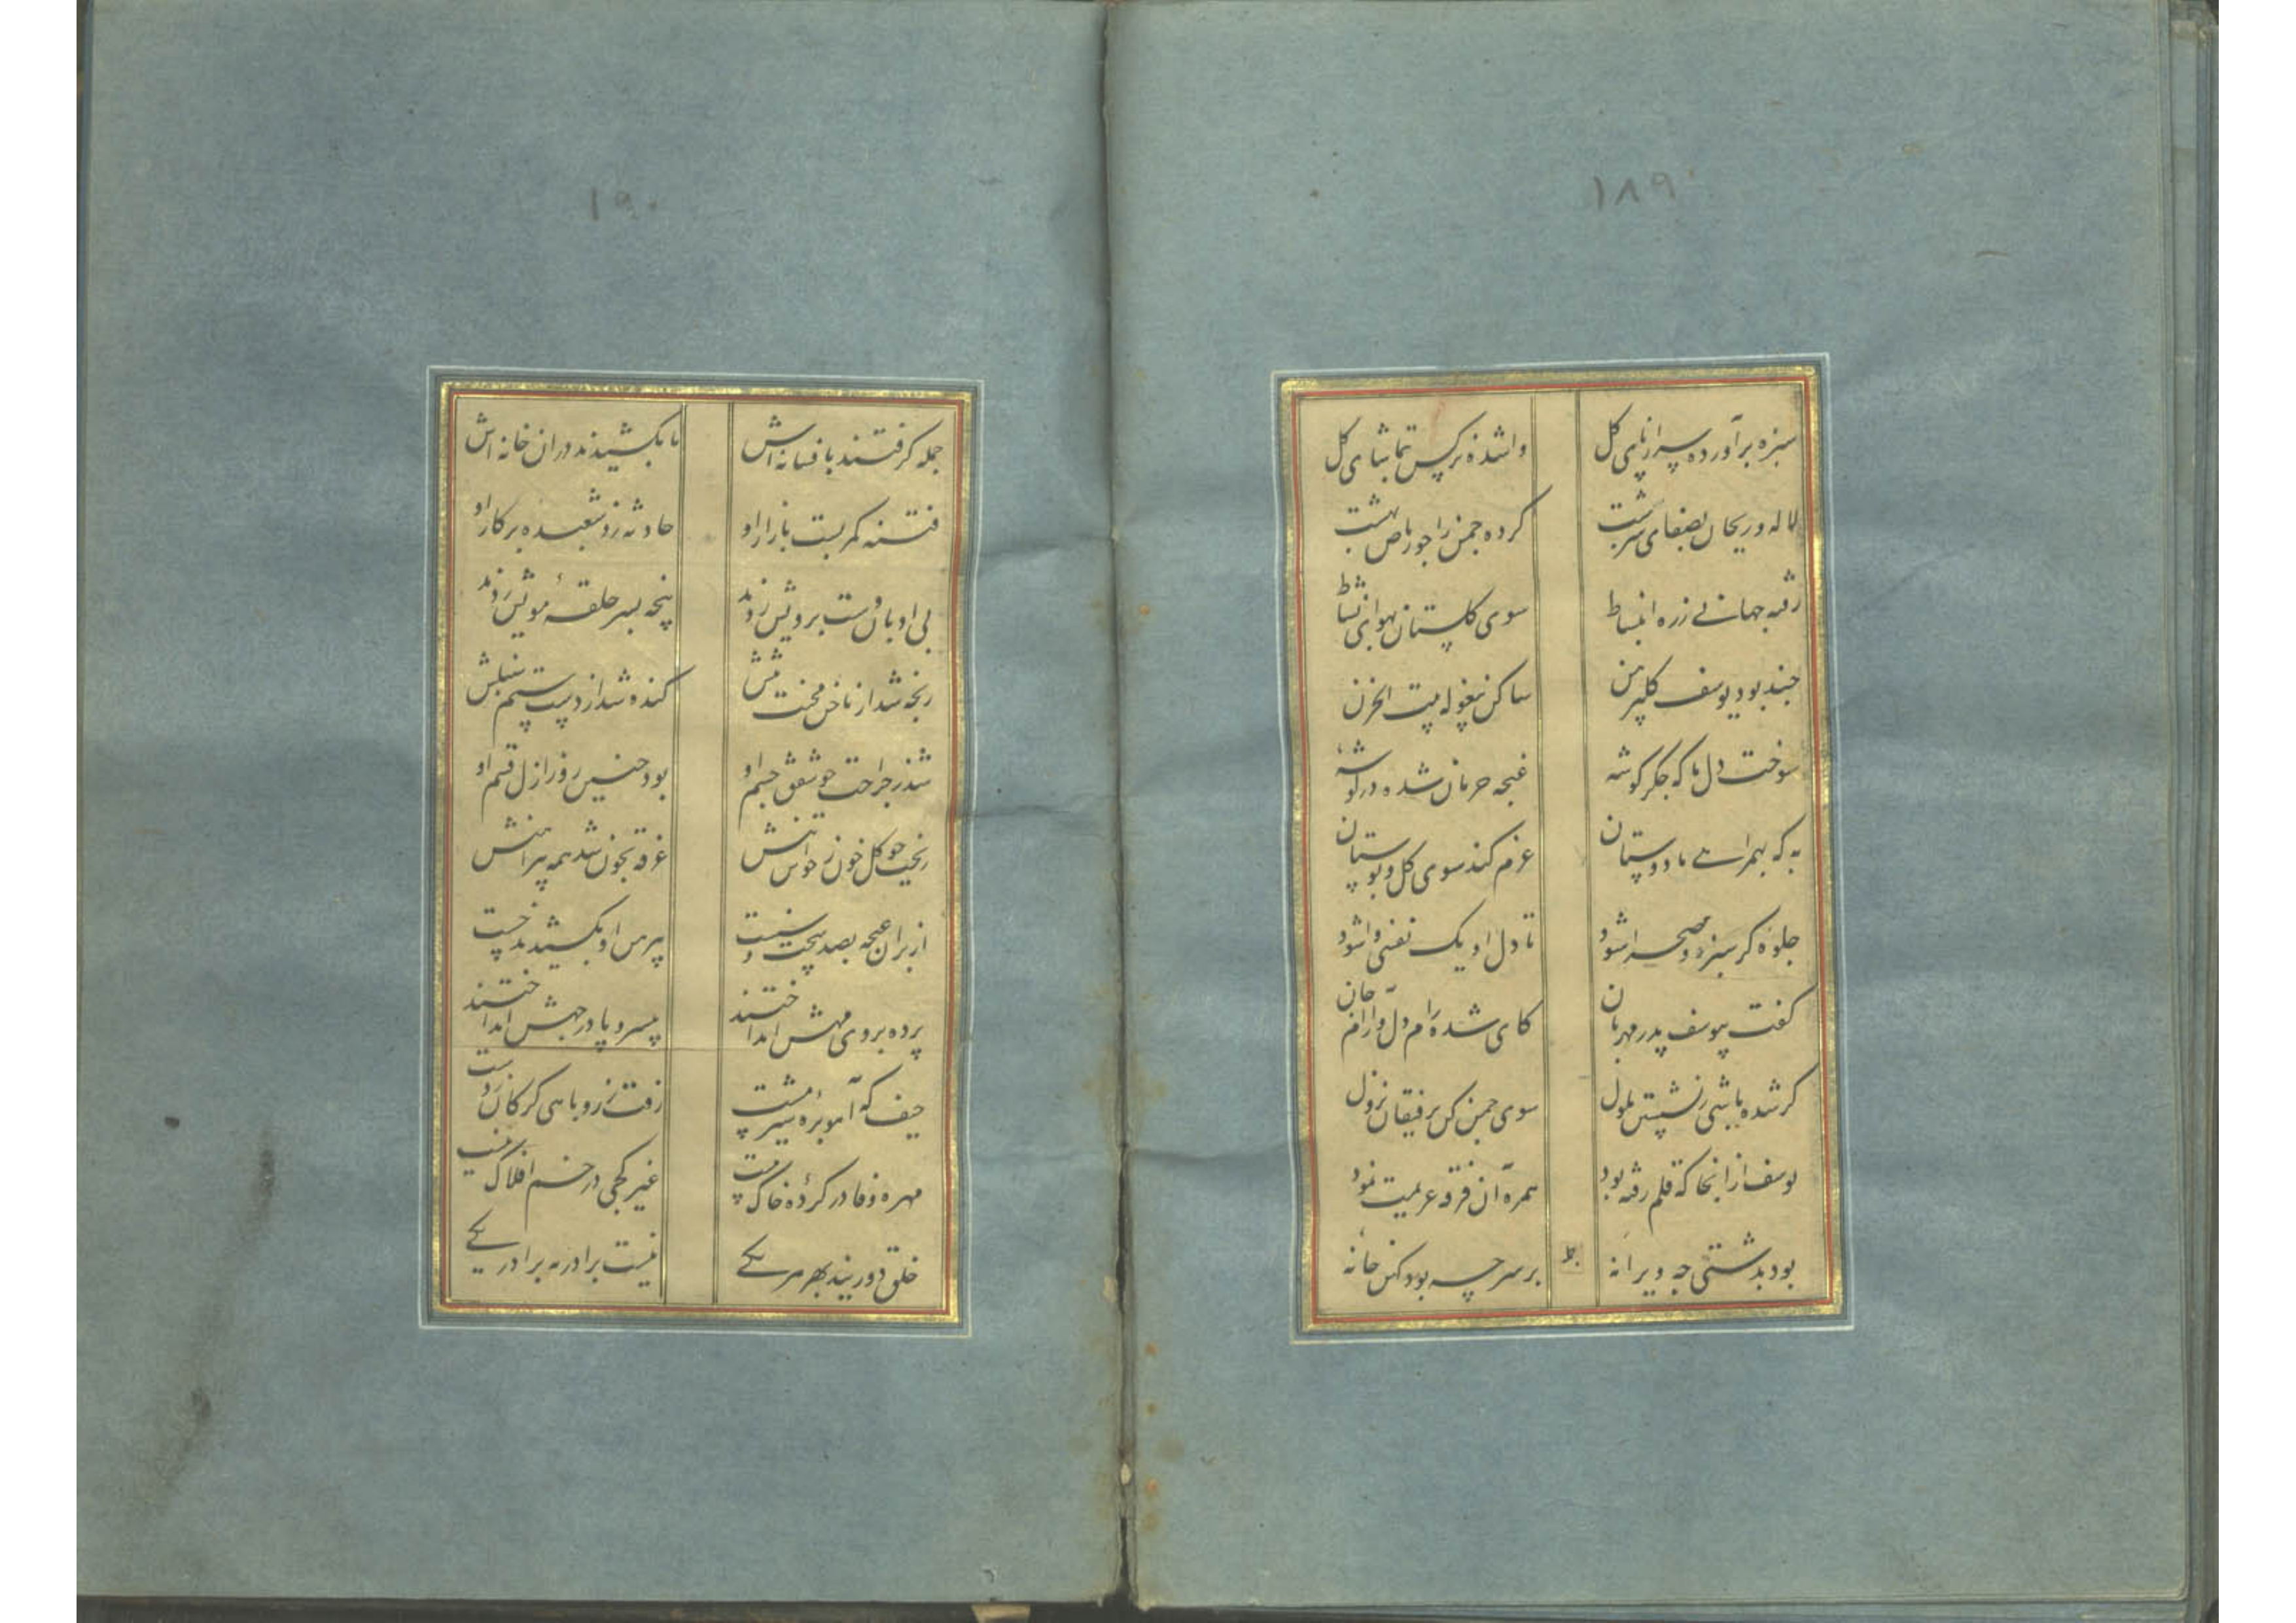 ۱۸۹
سبزه برآورده سر از پای کل
واشده نرکس تماشای کل
لاله و ریحان بصفای سرشت
کرده چمن را جو ریاض بهشت
رفته جهانی ز ره انبساط
سوی کلستان بهوای نشاط
جند بود یوسف کلپیرهن
ساکن بیغوله بیت الحزن
سوخت دل ما که جکر کوشه
غنجه حرمان شده در کوشه
به که بهمراهی ما دوستان
عزم کند سوی کل و بوستان
جلوه کر سبزه و صحرا شود
تا دل او یک نفسی وا شود
کفت بیوسف پدر مهربان
کای شده رام دل و آرام جان
کر شده باشی ز نشستن ملول
سوی جمن کن برفیقان نزول
یوسف از انجا که قلم رفته بود
همره آن فرقه عزیمت نمود
بود بدشتی جه ویرانه
بر سر جه بود کهن خانه
۱۹۰
جمله کرفتند بافسانه اش
تا بکشیدند دران خانه اش
فتنه کمر بست بازار او
حادثه زد شعبده بر کار او
بی ادبان دست برویش زدند
پنجه بسر حلقهٔ مویش زدند
رنجه شد از ناخن محنت
کنده شد از دست ستم سنبلش
شد ز جراحت جو شفق جسم او
بود جنین روز ازل قسم او
ریخت جو کل خون ز تنش
غرقه بخون شد همه پیراهنش
از بر ان غنجه بصد
پیرهن او بکشیدند جست
پرده بروی مهش انداختند
بی سر و پا در جهش انداختند
حیف که آهوبره شیرمست
رفت ز روباهی کرکان ز دست
مهره وفا در کرهٔ خاک نیست
غیر کجی در خم افلاک نیست
خلق دورنید بهر مریکی
نیست برادر نه برادر یکی